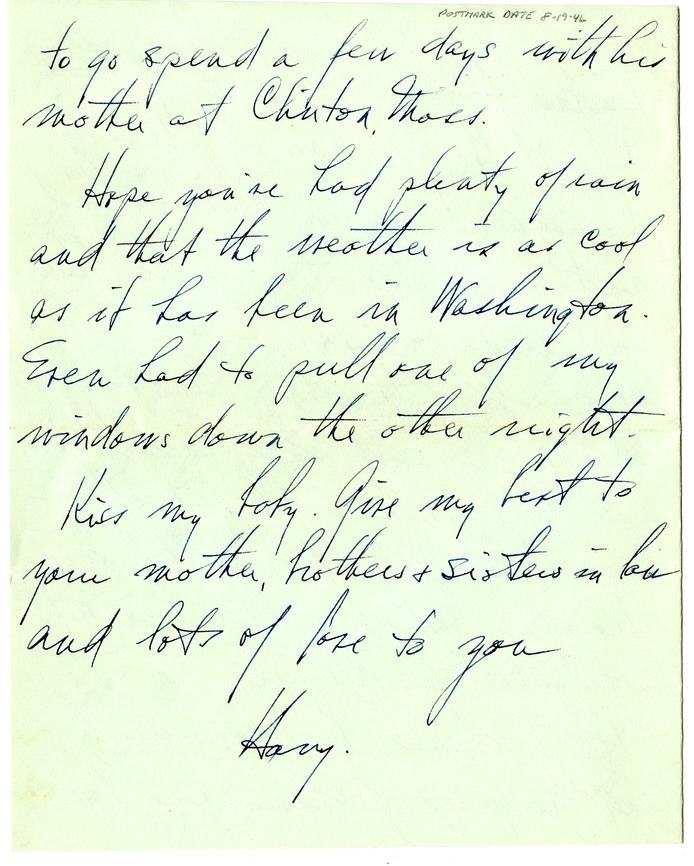 POSTMARK DATE 8-19-46
to go spend a few days with his
mother at Clinton, Mass.
Hope you've had plenty of rain
and that the weather is as cool
as it has been in Washington.
Even had to pull one of my
windows down the other night.
Kiss my baby. Give my best to
your mother, brothers & sisters in law
and lots of love to you
Harry.